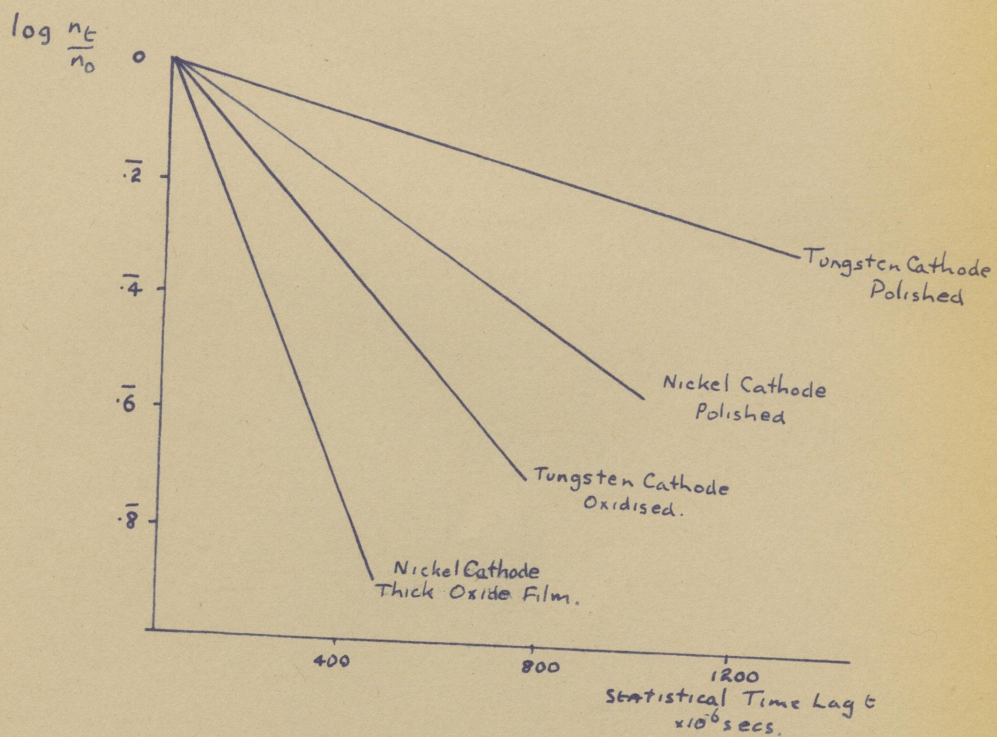 log n_t
n_0
0
.2̅
.4̅
.6̅
.8̅
Tungsten Cathode
Polished
Nickel Cathode
Polished
Tungsten Cathode
Oxidised.
Nickel Cathode
Thick Oxide Film.
400
800
1200
Statistical Time Lag t
x10⁻⁶ secs.